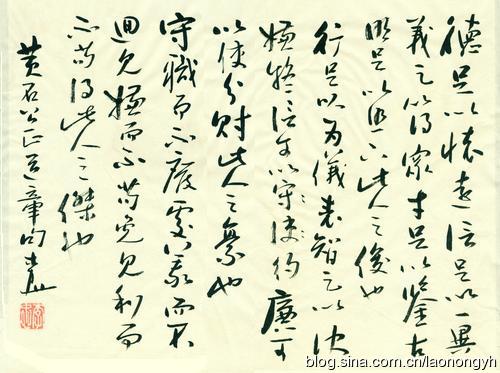 德足以懷遠信足以一異
義足以得衆才足以鑒古
明足以照下此人之俊也
行足以为儀表智足以決
嫌疑信可以守使約廉可
以使分財此人之豪也
守職而不廢處義而不
回見嫌而不苟免見利而
不苟得此人之傑也
黄石公正道章句
blog.sina.com.cn/laonongyh